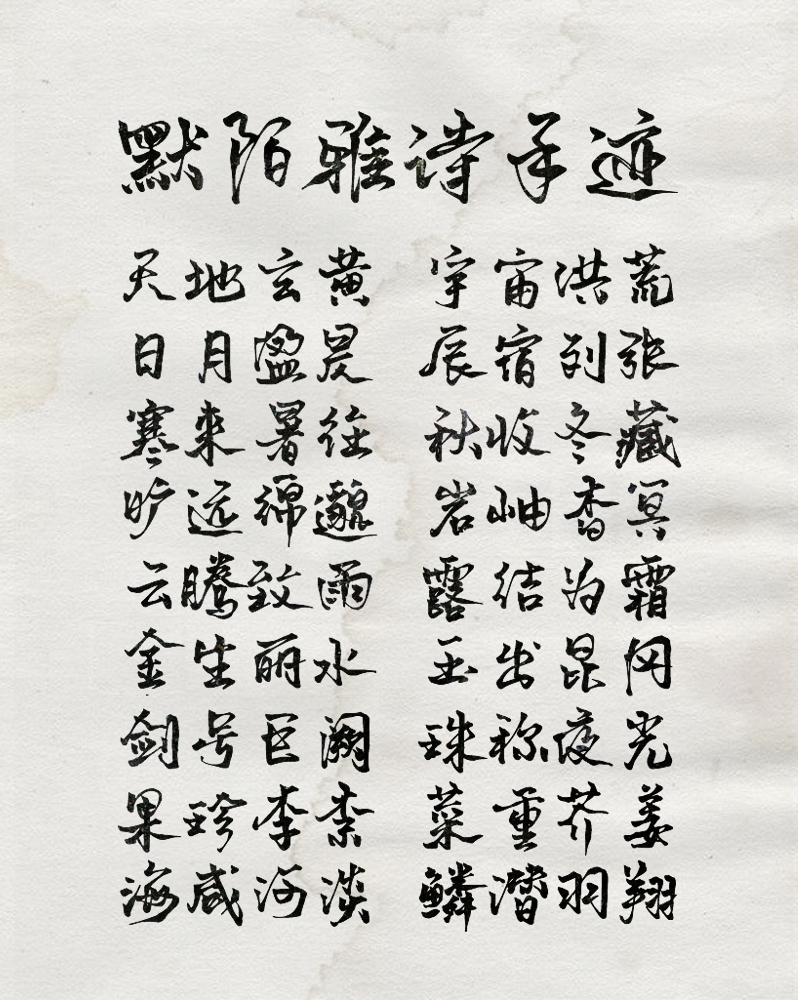 默陌雅诗手迹
天地玄黄 宇宙洪荒
日月盈昃 辰宿列张
寒来暑往 秋收冬藏
旷远绵邈 岩岫杳冥
云腾致雨 露结为霜
金生丽水 玉出昆冈
剑号巨阙 珠称夜光
果珍李柰 菜重芥姜
海咸河淡 鳞潜羽翔